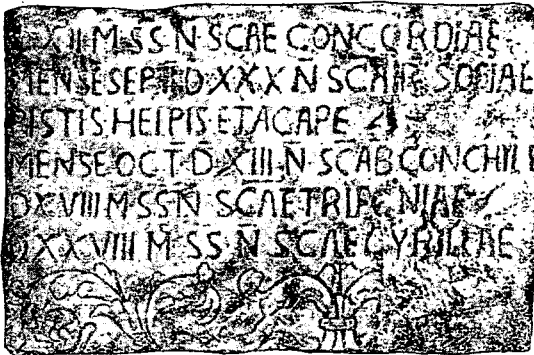 D XII M · SS · N · SCAE CONCORDIAE
MENSE SEPT D XXX N SCAE SOFIAE
PISTIS HELPIS ET ACAPE
MENSE OCT · D · XIII · N · SCAB CONCHILE
D XVIII M SS N SCAE TRIFENIAE
D XXVIII M SS N SCAE CYRILLAE